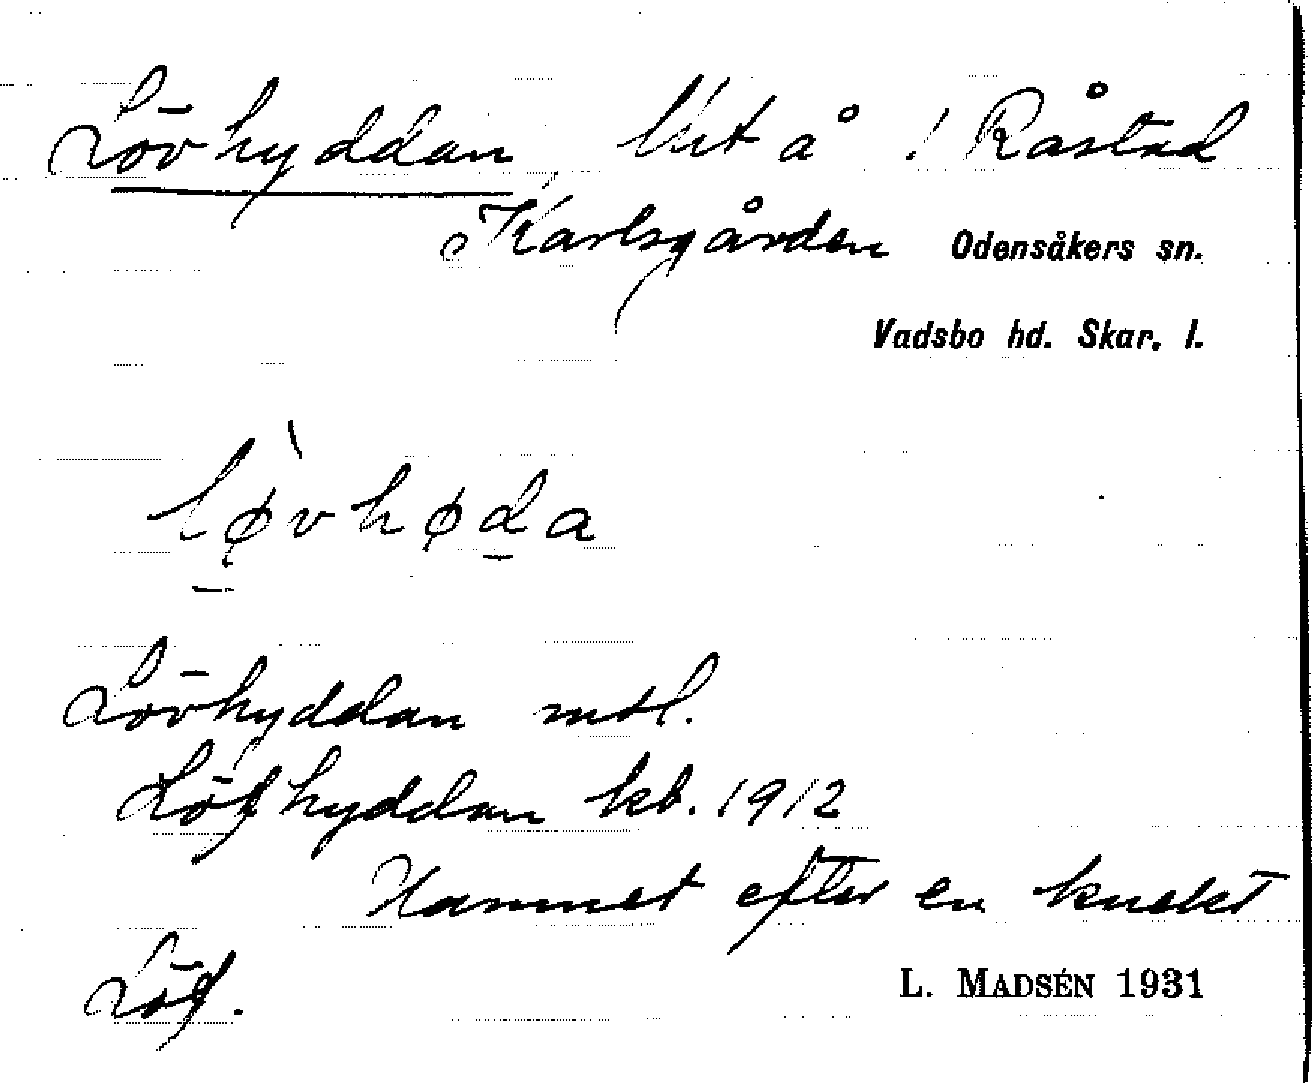 Lövhyddan Utt å 1 Råstad
Karlsgården Odensåkers sn.
Vadsbo hd. Skar. l.
lø̀vhøda
Lövhyddan mtl.
Löfhyddan kb. 1912
Namnet efter en knekt
Löf.
L. MADSÉN 1931